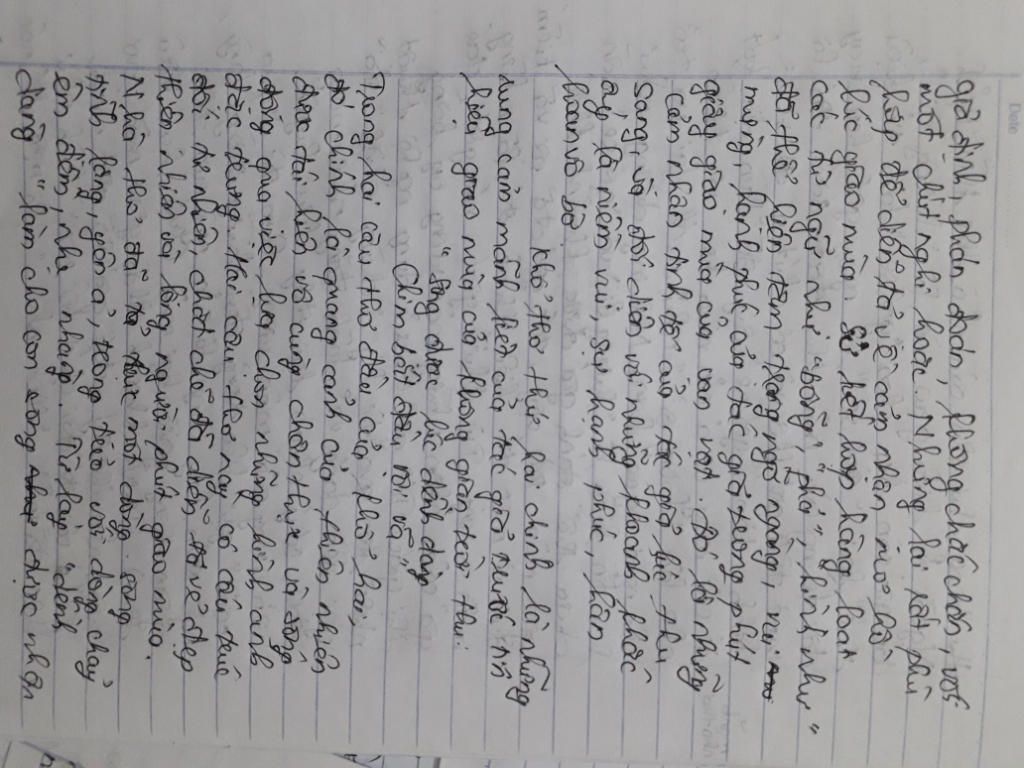 Date
giả định, phán đoán, không chắc chắn, với
một chút nghi hoặc. Nhưng lại rất phù
hợp để diễn tả về cảm nhận mơ hồ
lúc giao mùa. Sự kết hợp hàng loạt
các từ ngữ như "bỗng", "phả", "hình như"
đã thể hiện tâm trạng ngỡ ngàng, vui
miệng, hạnh phúc của tác giả trong phút
giây giao mùa của vạn vật. Đó là những
cảm nhận tinh tế của tác giả lúc thu
sang, và đối diện với những khoảnh khắc
ấy, là niềm vui, sự hạnh phúc, hân
hoan vô bờ.
Khổ thơ thứ hai chính là những
rung cảm mãnh liệt của tác giả trước tín
hiệu giao mùa của không gian trời thu:
"Sông được lúc dềnh dàng
Chim bắt đầu vội vã"
Trong hai câu thơ đầu của khổ hai,
đó chính là quang cảnh của thiên nhiên
được tái hiện vô cùng chân thực và sống
động qua việc lựa chọn những hình ảnh
đặc trưng. Hai câu thơ này có cấu trúc
đối tự nhiên, chặt chẽ đã diễn tả vẻ đẹp
thiên nhiên và lòng người phút giao mùa.
Nhà thơ đã tả thực một dòng sông
tĩnh lặng, yên ả, trong trẻo với dòng chảy
êm đềm, nhẹ nhàng. Từ láy "dềnh
dàng" làm cho con sông được nhân